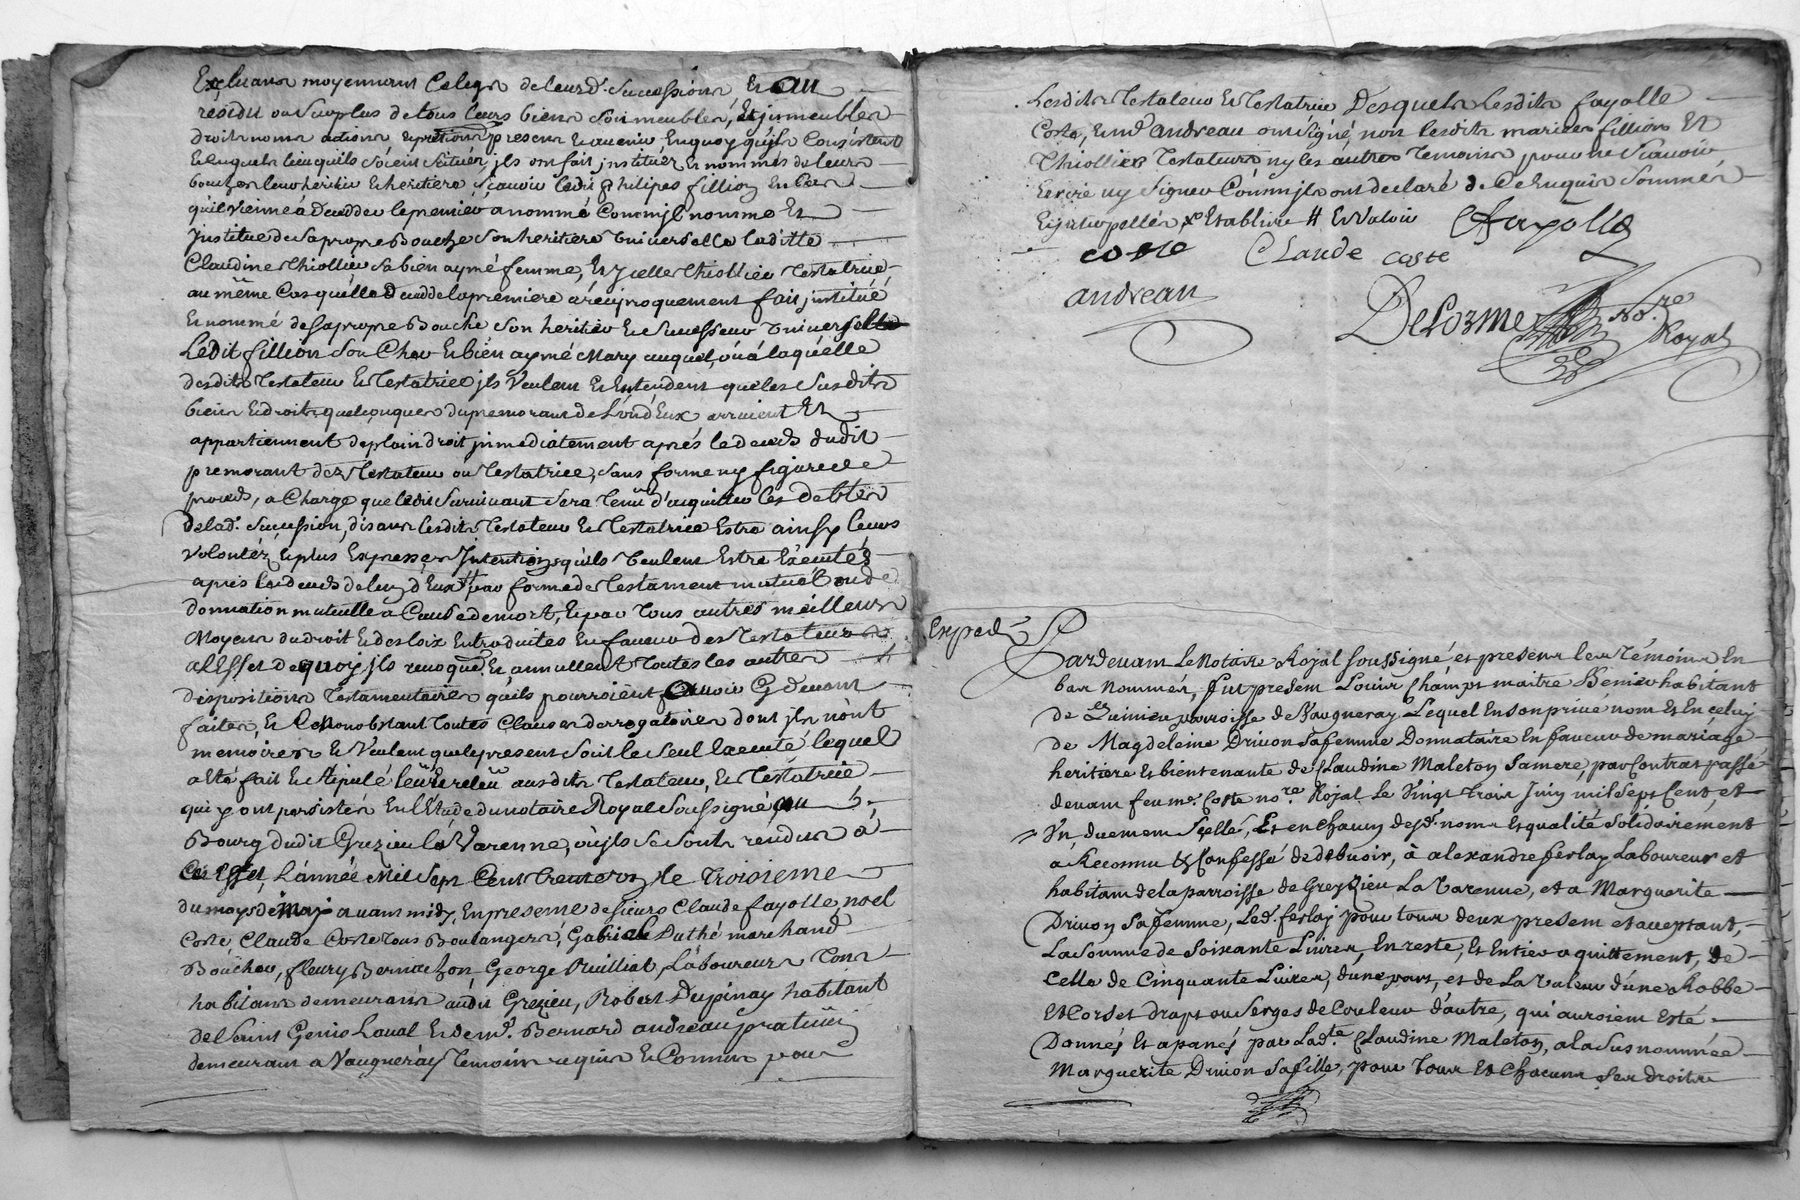 Excluans moyennant Ce legs de leurd. Succession Et au
residu ou Surplus de tous leurs biens Soit meubles, Et jmmeubles
droits noms actions Et pretentions presens Et avenir En quoy quils Consistent
Et En quels lieu quils Soient Situés, jls ont fait, jnstitués Et nommés de leurs
bouches leur heritier Et heritiere Scavoir ledit Philipes fillion En Cas
qu'il vienne à Decedder le premier à nommé Comm'jl nomme Et
jnstitue de Sa propre Bouche Son heritiere universelle laditte
Claudine Thiollier Sa bien aymé femme, Et jcelle Thiollier Testatrice
au même Cas qu'elle Decedde la premiere à reciproquement fait jnstitué
Et nommé de Sa propre Bouche Son heritier Et Successeur universelle
Ledit fillion Son Cher Et bien aymé Mary auquel, ou à laquelle
desdits Testateur Et Testatrice jls Veulent Et Entendent que les Susdits
biens Et droits quelconques du premourant de L'un d'Eux arrivent Et
appartiennent de plain droit jmmediatement aprés le deceds dudit
premorant des Testateur ou Testatrice, Sans forme ny figure de
procés, a Charge que ledit Survivant Sera Tenu d'acquitter les debtes
de lad. Succession, disans lesdits Testateur Et Testatrice Estre ainsy leurs
Volontéz Et plus Expresses Jntentions qu'ils veulent Estre Exécutés
aprés les deceds de lun d'Eux # par forme de Testament mutuel ou de
donnation mutuelle a Cause de mort, Et par Tous autres meilleurs
Moyens du droit Et des loix Entroduites En faveur des Testateurs
a l'Effet de quoy jls revoquent Et annullent Toutes les autres
dispositions Testamentaires qu'ils pourroient avoir Cy devant
faites, Et Ce nonobstant Toutes Clauses derrogatoires dont jls n'ont
memoires Et Veulent que le present Soit le Seul Executé lequel
a Eté fait Et Stipulé leu Et releu ausdits Testateur, Et Testatrice
qui y ont persistés En l'Etude du notaire Royal Soussigné au
Bourg dudit Grezieu la Varenne, ou jls Se Sont rendus à
Cet Effet, L'année Mil Sept Cent trente le Troisieme
du moys de May avant midy, En presence de Sieurs Claude fayolle, noel
Coste, Claude Coste Tous Boulangers, Gabriel Duthé marchand
Boucher, fleury Bernachon George Pailliat, Laboureurs Tous
habitans demeurans audit Grezieu, Robert Dupinay habitant
de Saint Genis Laval Et de me. Bernard andreau praticien
demeurant a Vaugneray Temoins requis Et Connus pour
Lesdits Testateur Et Testatrice Desquels lesdits fayolle
Coste, Et me andreau ont Signé, non lesdits mariés fillion Et
Thiollier Testateurs ny les autres Temoins pour ne Scavoir
Ecrire ny Signer Comm'jls ont declaré de Ce Enquis Sommés
Et jnterpellés Et ablir # Et valoir CFayolle
coste Claude coste
andreau
DeLorme No.re
Royal
Expedié
Pardevant Le Notaire Royal Soussigné, et presens les Témoins En
bas nommés, fut present Louis Champt maitre Benier habitant
de parroisse de Vaugneray Lequel En Son privé nom Et En celuy
de Magdeleine Drivon Sa femme Donnataire En faveur de mariage
heritiere Et bientenante de Claudine Maleton Sa mere, par Contrat passé
devant feu me. Coste nore. Royal Le Vingt trois Juin mil Sept Cent, et
Un duement Scellé, Et en chacun desd. noms Et qualité Solidairement
a Reconnu Et Confessé de debvoir, à alexandre ferlay Laboureur et
habitant de la parroisse de Greyzieu La Varenne, et a Marguerite
Drivon Sa femme, Led. ferlay pour tous deux present et acceptant,
La Somme de Soixante Livres, En reste, Et Entier aquittement, de
Celle de Cinquante Livres, d'une part, et de La Valeur d'une Robbe
Et Corset draps ou Serges de Couleur d'autre, qui auroient Esté
Donnés Et apanés par Lad.te Claudine Maleton, a la Susnommée
Marguerite Drivon Sa fille, pour tous Et Chacuns Ses droits